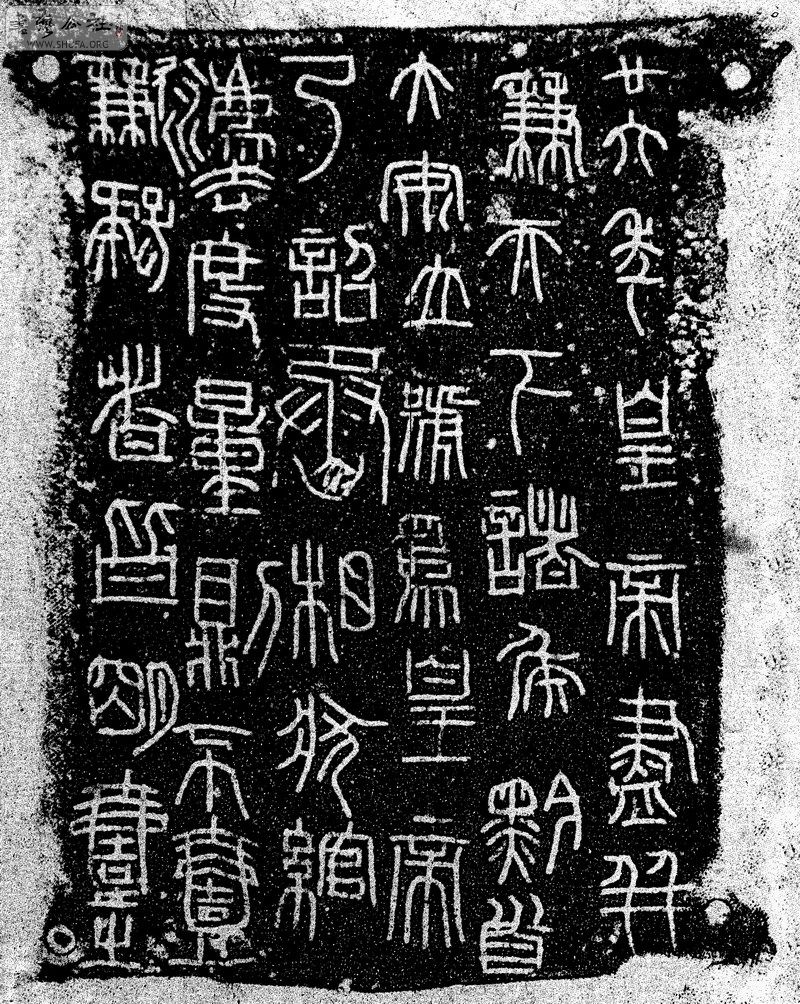 廿六年皇帝盡并
兼天下諸侯黔首
大安立號為皇帝
乃詔丞相狀綰
灋度量則不壹
歉疑者皆明壹之
WWW.SHUFA.ORG